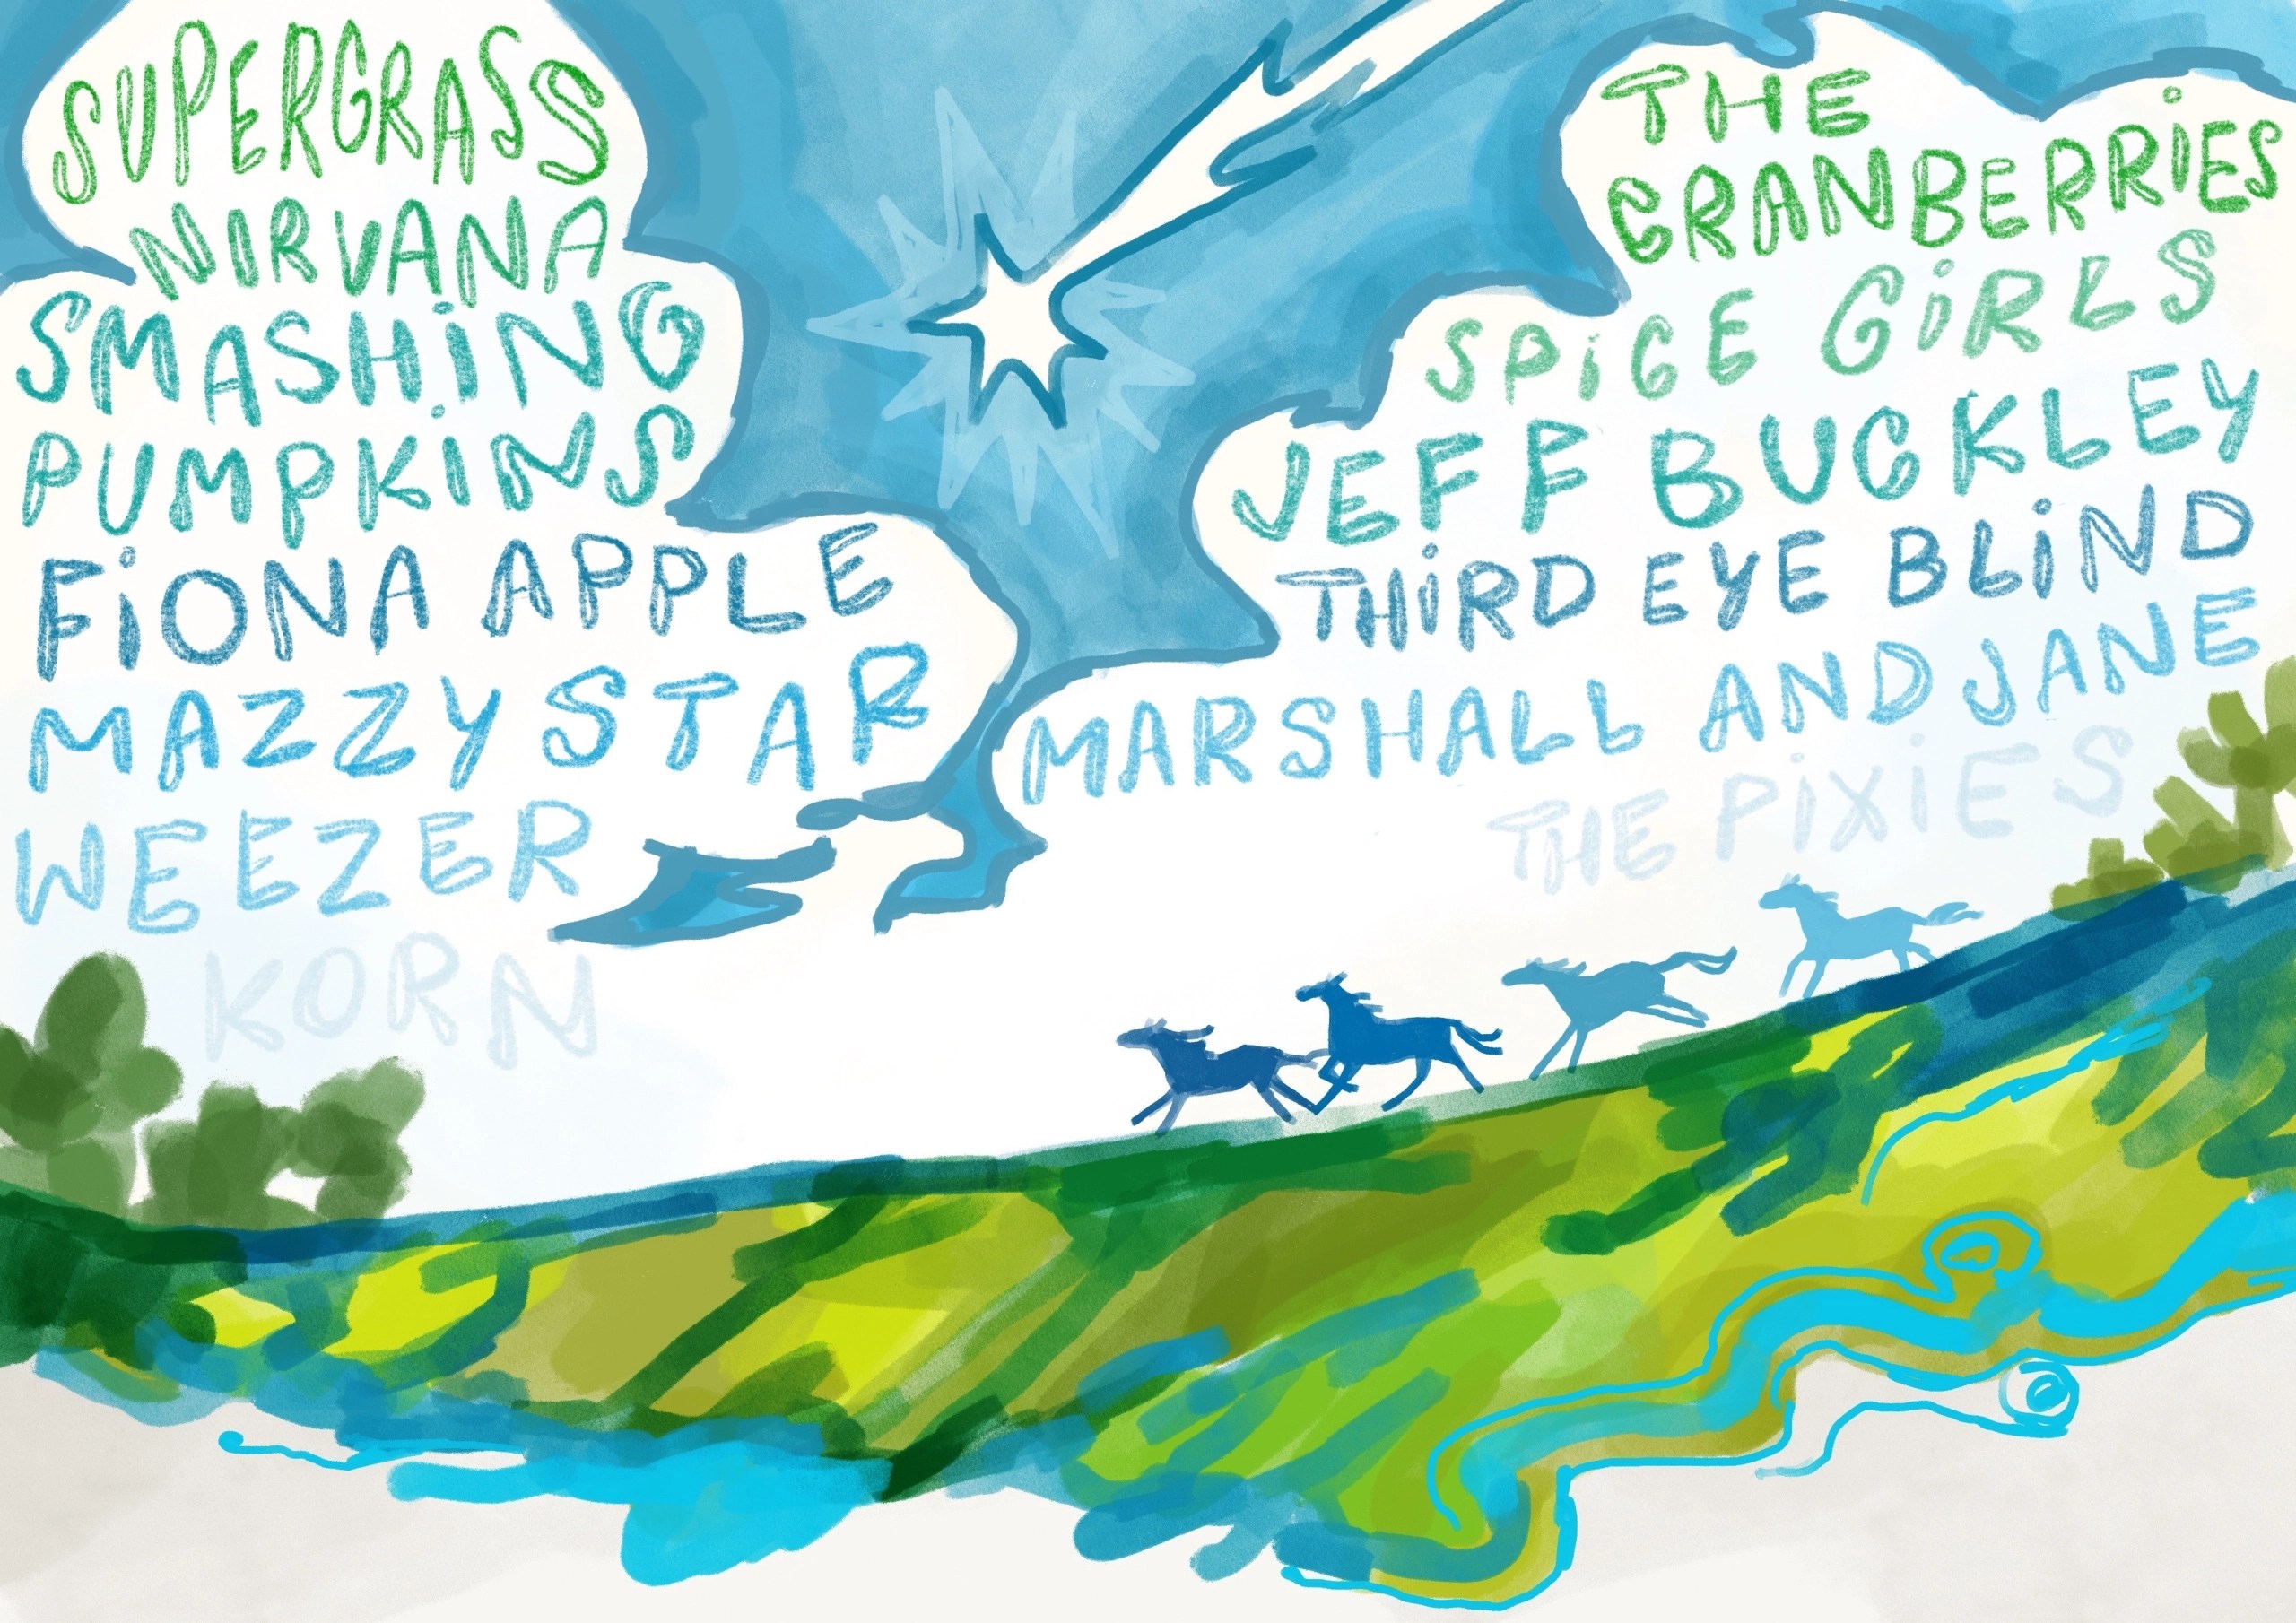 SUPERGRASS
NIRVANA
SMASHiNG
PUMPKiNS
FiONA APPLE
MAZZY STAR
WEEZER
KORN
THE
CRANBERRiES
SPiCE GiRLS
JEFF BUCKLEY
THiRD EYE BLiND
MARSHALL AND JANE
THE PiXiES